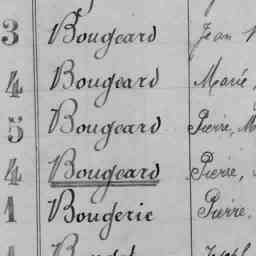 3 Bougeard Jean
4 Bougeard Marie,
5 Bougeard Pierre, M
4 Bougeard Pierre,
1 Bougerie Pierre.
1